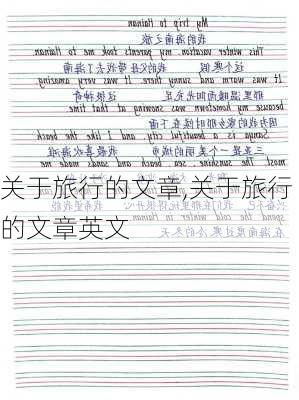 My trip to Hainan
我的海南之旅
This winter vacation, my parents took me to Hainan
这个寒假 我的父母带我去了海南
It was warm and sunny there. It was very amazing
那里温暖而阳光充足 这很神奇
because my hometown was snowing at that time
因为我的家乡那时候在下雪
Sanya is a beautiful city, and I like the beach
三亚是一个美丽的城市 我喜欢海滩
most. The sunshine, sea, beach and sands made me
关于旅行的文章,关于旅行
的文章英文
spend the cold winter in Hainan
在海南度过寒冷的冬天